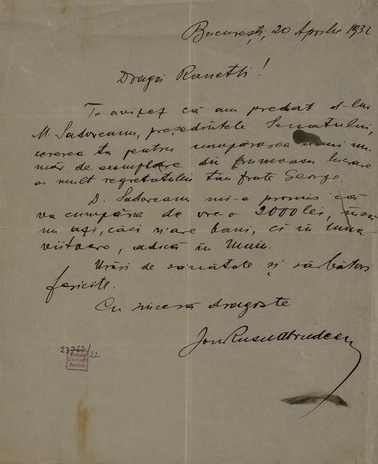 București, 20 Aprilie 1932
Dragă Ranetti!
Te avizez că am predat d-lui
M. Sadoveanu, președintele Senatului,
cererea ta pentru cumpărarea unui nu-
măr de exemplare din frumoasa lucrare
a mult regretatului tău frate George.
D. Sadoveanu mi-a promis că
va cumpăra de vre-o 2000 lei, însă
nu azi, căci n'are bani, ci în luna
viitoare, adică în Maiu.
Urări de sănătate și sărbători
fericite.
Cu sinceră dragoste
Ion Rusu Abrudeanu